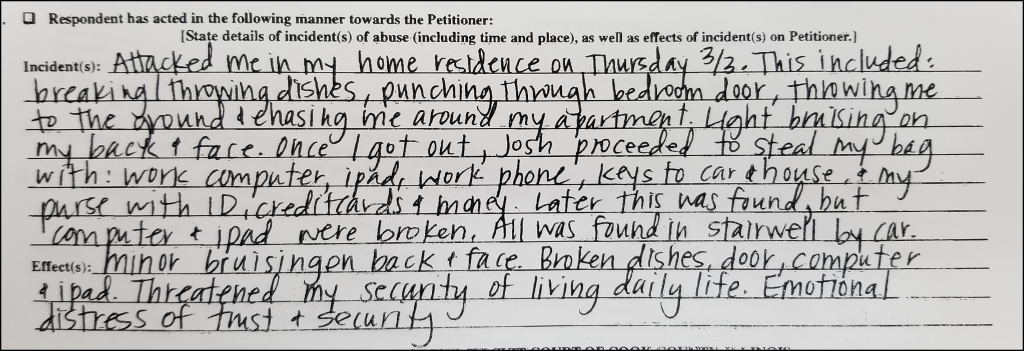 ☐ Respondent has acted in the following manner towards the Petitioner:
[State details of incident(s) of abuse (including time and place), as well as effects of incident(s) on Petitioner.]
Incident(s): Attacked me in my home residence on Thursday 3/3. This included:
breaking/throwing dishes, punching through bedroom door, throwing me
to the ground & chasing me around my apartment. Light bruising on
my back & face. Once I got out, Josh proceeded to steal my bag
with: work computer, ipad, work phone, keys to car & house, & my
purse with ID, creditcards & money. Later this was found, but
computer & ipad were broken. All was found in stairwell by car.
Effect(s): minor bruising on back & face. Broken dishes, door, computer
& ipad. Threatened my security of living daily life. Emotional
distress of trust & security